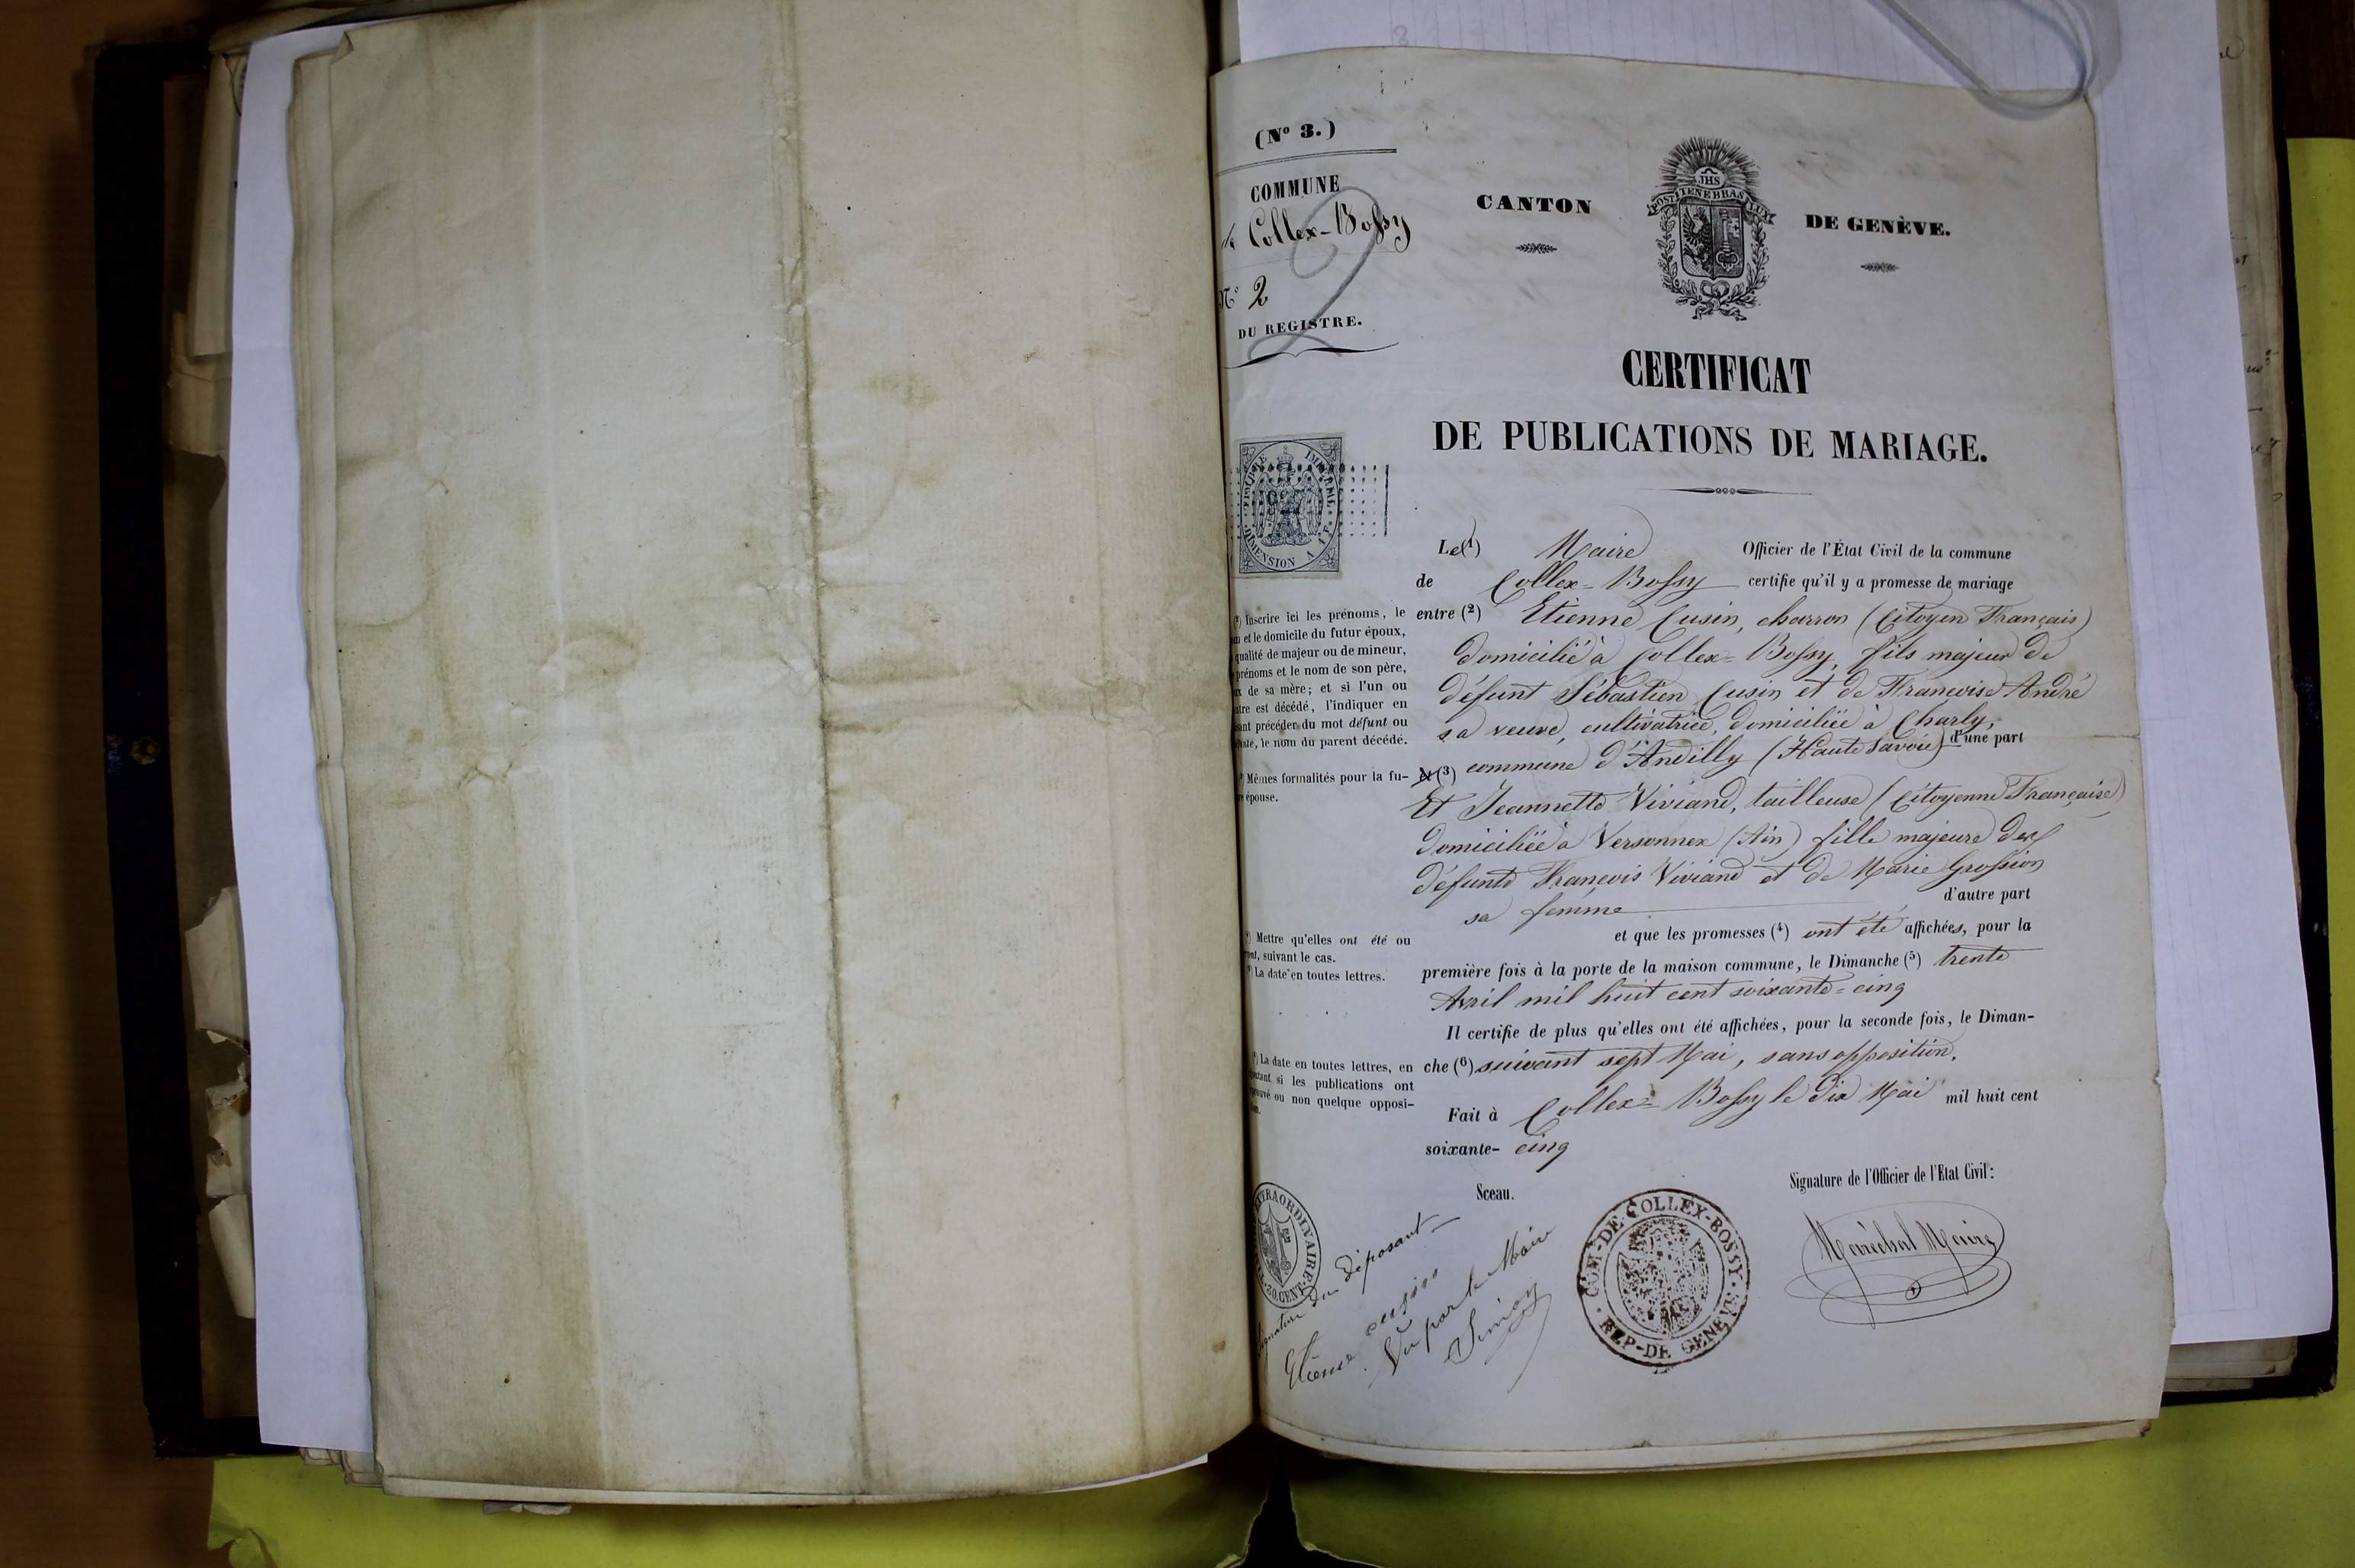 (Nº 3.)
COMMUNE
de Collex-Bossy
Nº 2
DU REGISTRE.
2
CANTON
JHS
POST TENEBRAS LUX
DE GENÈVE.
CERTIFICAT
DE PUBLICATIONS DE MARIAGE.
TIMBRE IMPERIAL
DIMENSION A 1 F
Le (1) Maire Officier de l'État Civil de la commune
de Collex-Bossy certifie qu'il y a promesse de mariage
entre (2) Etienne Cusin, charron (Citoyen Français)
domicilié à Collex-Bossy, fils majeur de
défunt Sébastien Cusin et de Francoise André
sa veuve, cultivatrice, domiciliée à Charly,
commune d'Andilly (Haute Savoie) d'une part
Et (3)
Et Jeannette Viviand, tailleuse (Citoyenne Française)
domiciliée à Versonnex (Ain) fille majeure des
défunts François Viviand et de Marie Grossion
sa femme d'autre part
et que les promesses (4) ont été affichées, pour la
première fois à la porte de la maison commune, le Dimanche (5) trente
Avril mil huit cent soixante=cinq
Il certifie de plus qu'elles ont été affichées, pour la seconde fois, le Diman-
che (6) suivant sept Mai, sans opposition.
Fait à Collex=Bossy le dix Mai mil huit cent
soixante- cinq
(2) Inscrire ici les prénoms, le
et le domicile du futur époux,
qualité de majeur ou de mineur,
prénoms et le nom de son père,
de sa mère; et si l'un ou
est décédé, l'indiquer en
précéder du mot défunt ou
le nom du parent décédé.
Mêmes formalités pour la fu-
épouse.
Mettre qu'elles ont été ou
suivant le cas.
La date en toutes lettres.
La date en toutes lettres, en
si les publications ont
ou non quelque opposi-
Sceau.
Signature de l'Officier de l'Etat Civil:
Maréchal Maire
COM-DE-COLLEX-BOSSY
REP-DE GENEVE
EXTRAORDINAIRE
20.CENT.
Signature du déposant
Etienne cusin
Vu par le Maire